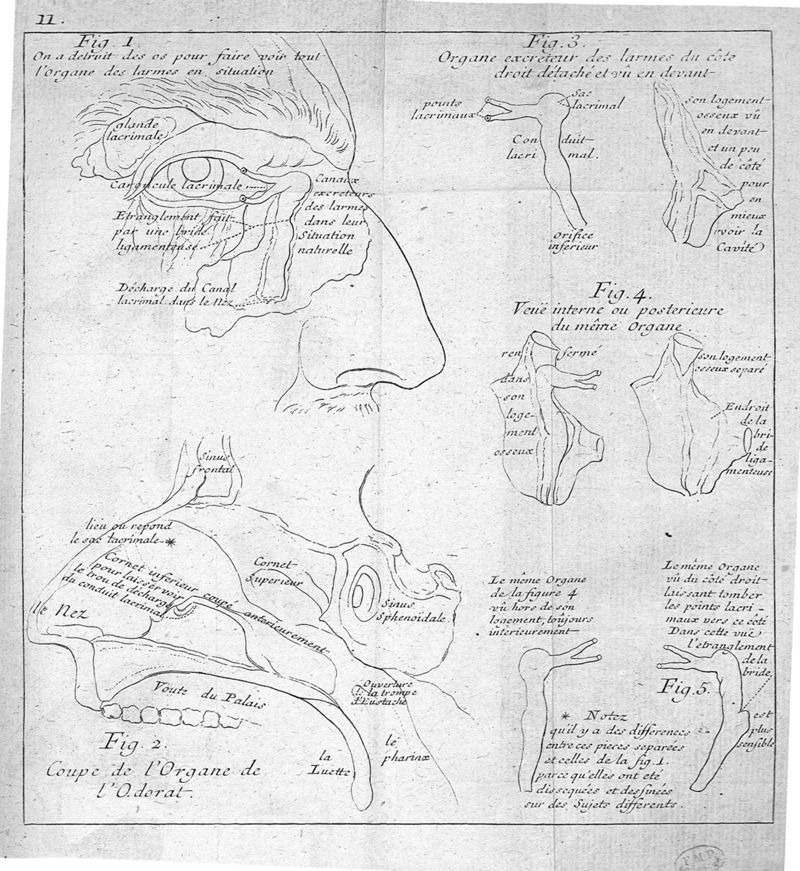 11.
Fig. 1
On a detruit des os pour faire voir tout
l'Organe des larmes en situation
glande
lacrimale
Caroncule lacrimale
Canaux
excreteurs
des larmes
dans leur
Situation
naturelle
Etranglement fait
par une bride
ligamenteuse
Décharge du Canal
lacrimal dans le Nez
Fig. 3.
Organe excreteur des larmes du côté
droit détaché et vû en devant
points
lacrimaux
Sac
lacrimal
Conduit
lacrimal.
orifice
inferieur
son logement
osseux vû
en devant
et un peu
de côté
pour
en
mieux
voir la
Cavité
Fig. 4.
Veuë interne ou posterieure
du même Organe
renfermé
dans
son
loge-
ment
osseux
son logement
osseux separé
Endroit
de la
bri-
de
liga-
menteuse
Sinus
frontal
lieu ou repond
le sac lacrimale *
Cornet inferieur coupé anterieurement
pour laisser voir
le trou de décharge
du conduit lacrimal
Cornet
Superieur
Sinus
Sphenoïdale
le Nez
Voute du Palais
Ouverture
de la trompe
d'Eustache
la
Luette
le
pharinx
Fig. 2.
Coupe de l'Organe de
l'Odorat.
Le même Organe
de la figure 4
vû hors de son
logement, toujours
interieurement
Le même Organe
vû du côté droit
laissant tomber
les points lacri-
maux vers ce côté
Dans cette vuë
l'etranglement
de la
bride,
est
plus
sensible
Fig. 5.
* Notez
qu'il y a des differences
entre ces pieces separées
et celles de la fig. 1.
parce qu'elles ont eté
dissequées et dessinées
sur des Sujets differents.